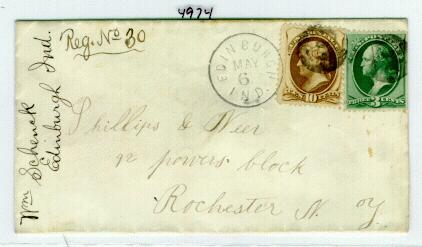 4974
Reg. No 30
Wm Schenck
Edinburgh Ind.
EDINBURGH
MAY
6
IND.
10
THREE 3 CENTS
Phillips &
powers block
Rochester N. Y